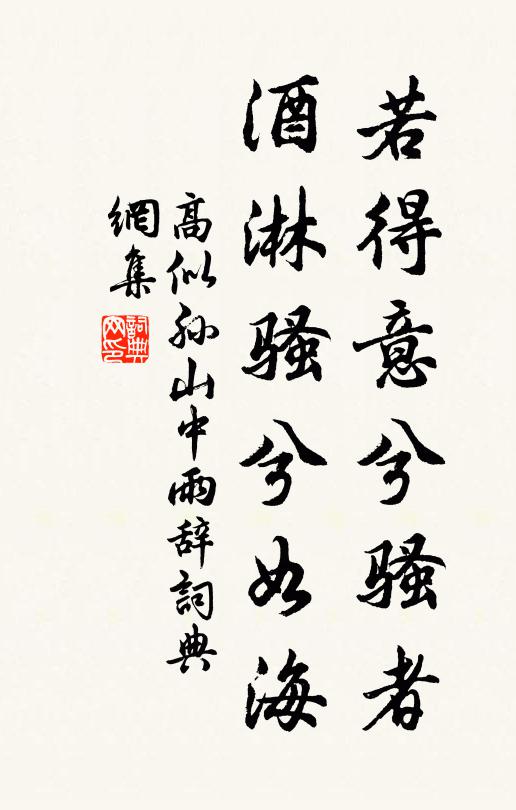 若得意兮骚者
酒淋骚兮如海
高似孙山中雨辞詞典
網集
詞典
网印